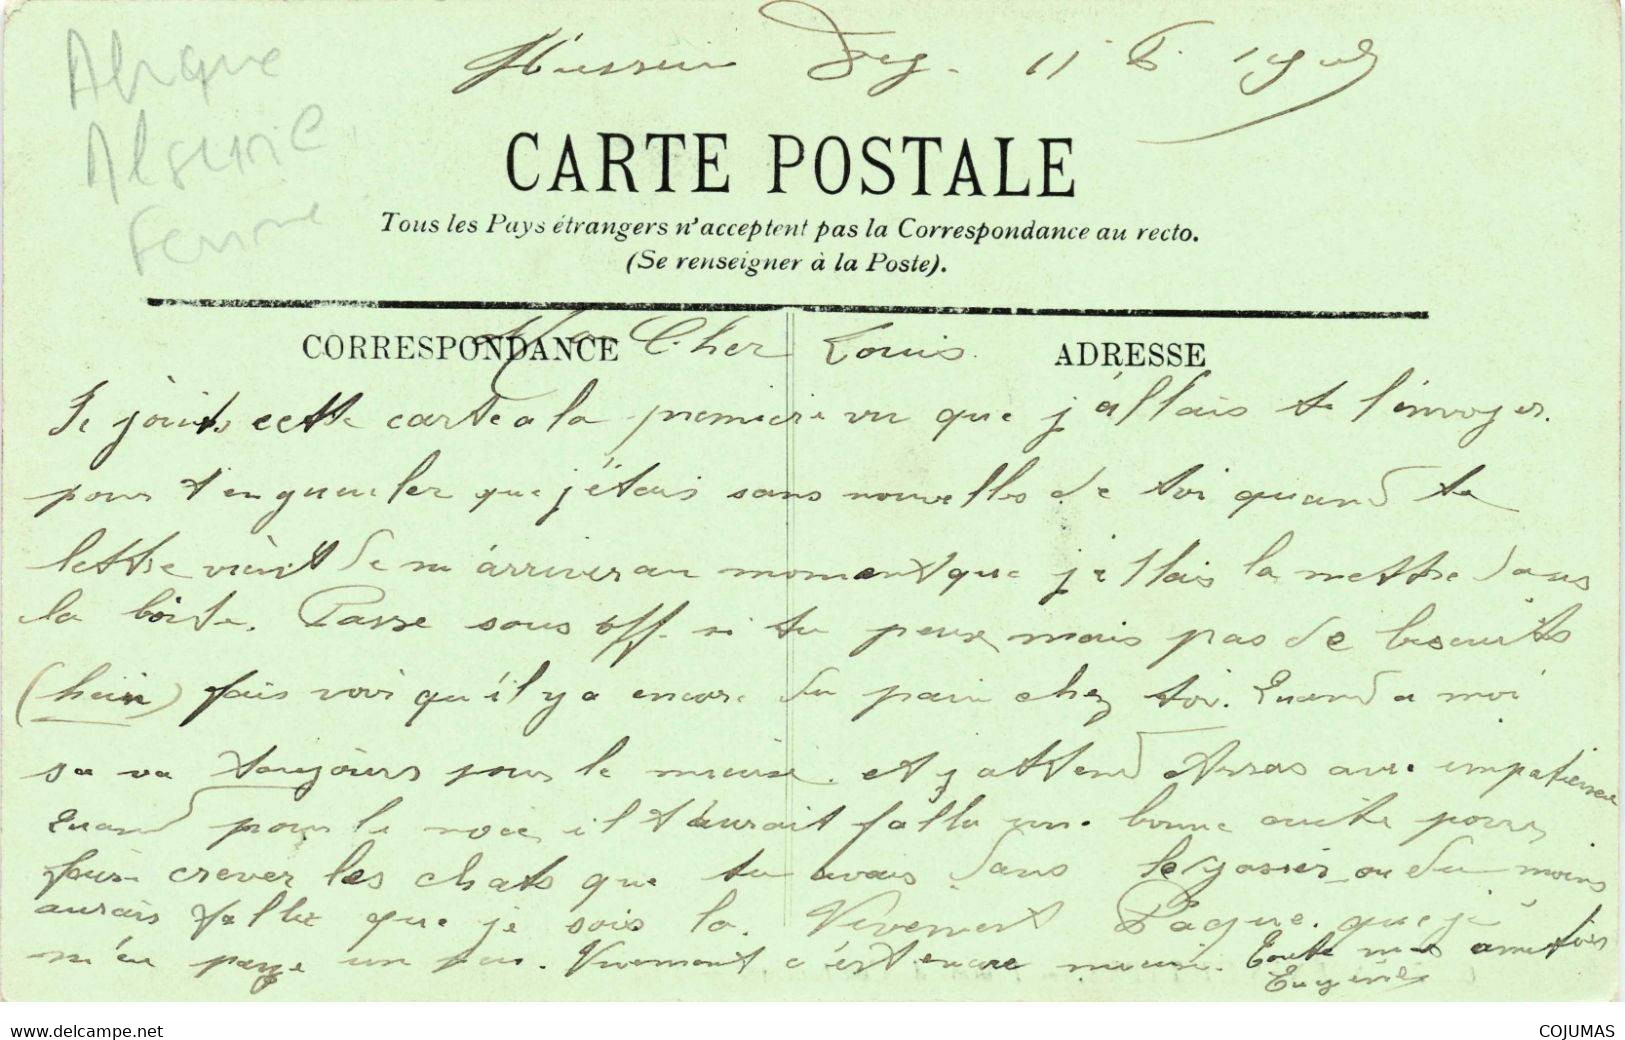 Afrique
Algerie
Femme
Hussein Dey. 11 6. 1905
CARTE POSTALE
Tous les Pays étrangers n'acceptent pas la Correspondance au recto.
(Se renseigner à la Poste).
CORRESPONDANCE
ADRESSE
Mon Cher Louis.
Je joints cette carte a la première vu que j'allais te l'envoyer.
pour t'engueuler que j'étais sans nouvelles de toi quand ta
lettre vient de m'arriver au moment que j'allais la mettre dans
la boite. Passe sous off. si tu peux, mais pas de biscuits
(hein) fais voir qu'il y a encore du pain chez toi. Quand a moi
sa va toujours pour le mieux. et j'attend Arras avec impatience
Quand pour la noce, il t'aurait fallu une bonne cuite pour
faire crever les chats que tu avais dans le gosier ou du moins
aurais fallu que je sois la. Vivement Paque. que je
m'en paye un peu. Vivement c'est encore mieux. Toute mes amitiés
Eugène
www.delcampe.net
COJUMAS